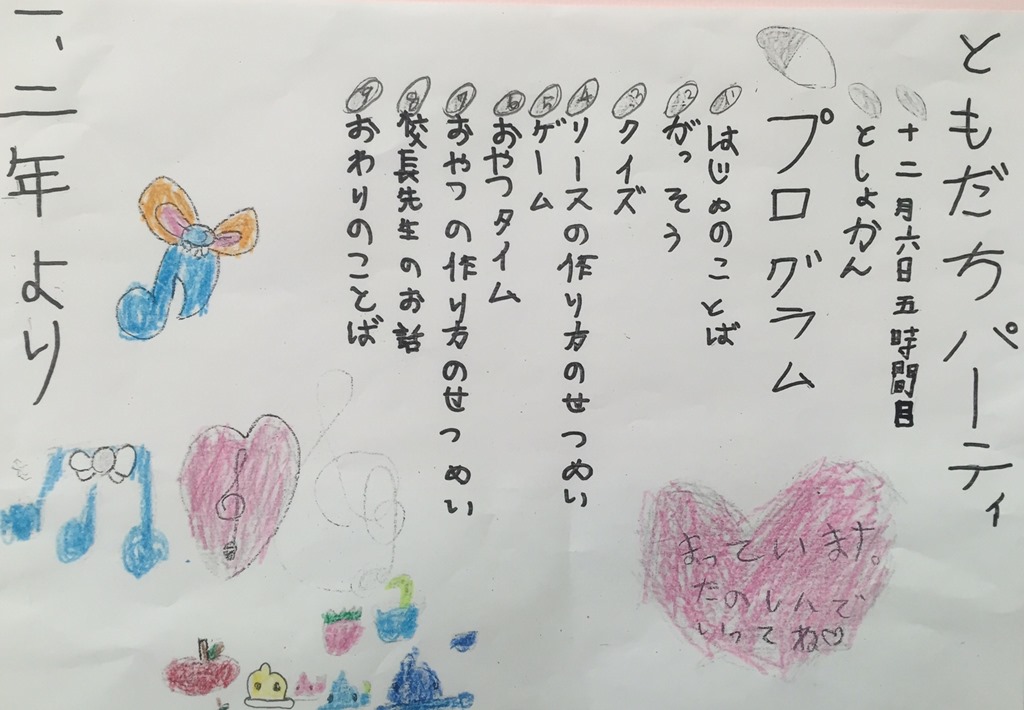 ともだちパーティ
十二月六日五時間目
としょかん
プログラム
①はじめのことば
②がっそう
③クイズ
④リースの作り方のせつめい
⑤ゲーム
⑥おやつタイム
⑦おやつの作り方のせつめい
⑧校長先生のお話
⑨おわりのことば
まっています。
たのしんで
いってね♡
一、二年より